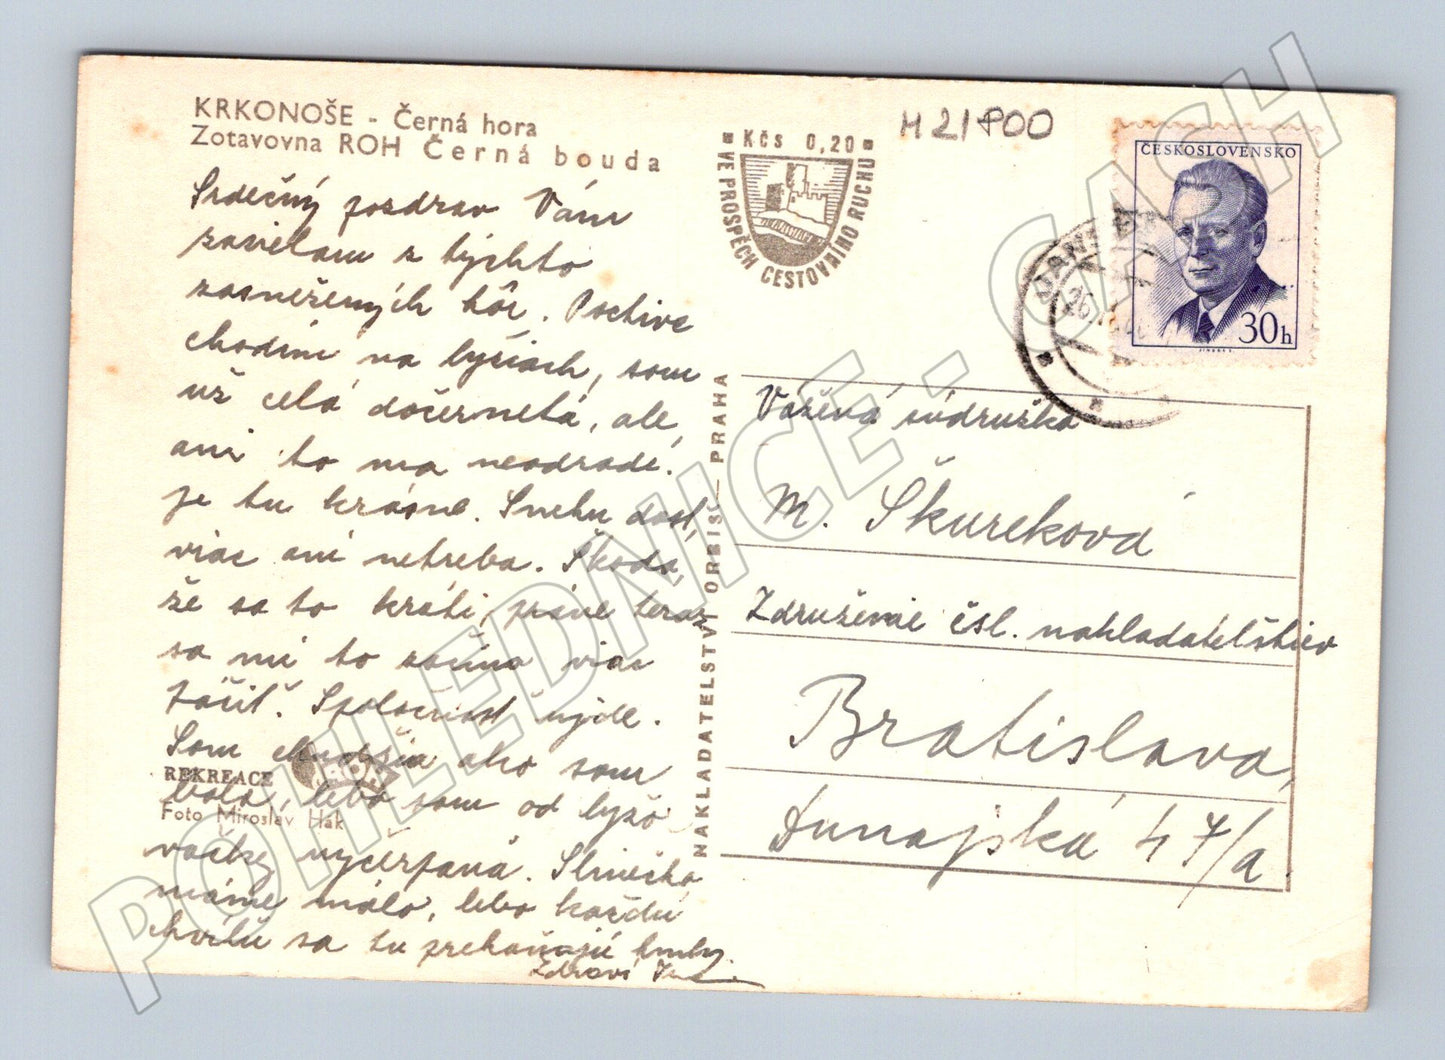 KRKONOŠE - Černá hora
Zotavovna ROH Černá bouda
Srdečný pozdrav Vám
zasielam z týchto
zasnežených hôr. Poctive
chodím na lyžiach, som
už celá dočernetá, ale
ani to ma neodradí.
Je tu krásne. Snehu dosť,
viac ani netreba. Škoda,
že sa to kráti, práve teraz
sa mi to začína viac
páčiť. Spoločnosť ujde.
Som chudšia ako som
bola, lebo som od lyžo
vačky vyčerpaná. Slniečka
máme málo, lebo každú
chvíľu sa tu preháňajú hmly.
Zdraví
REKREACE ROH
Foto Miroslav Hák
Kčs 0,20
VE PROSPĚCH CESTOVNÍHO RUCHU
NAKLADATELSTVÍ ORBIS — PRAHA
M21900
ČESKOSLOVENSKO
30h
JANSKÉ
Vážená súdružka
M. Škureková
Združenie čsl. nakladateľstiev
Bratislava,
Dunajská 47/a
POHLEDNICE - CASH